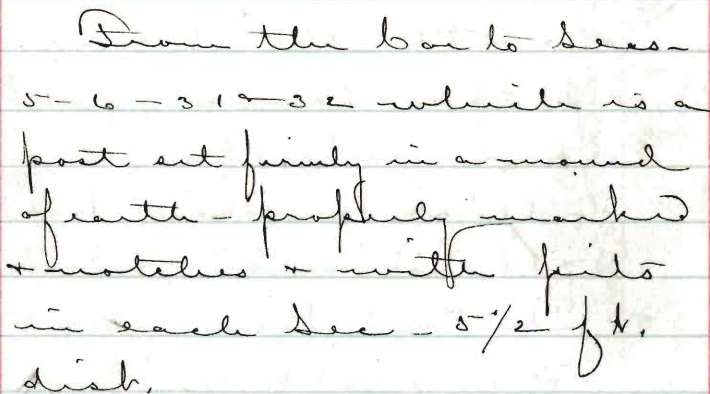 From the Cor to Secs-
5-6-31 & 32 which is a
post set firmly in a mound
of earth - properly marked
+ notches + with pits
in each Sec - 5 1/2 ft.
dist.